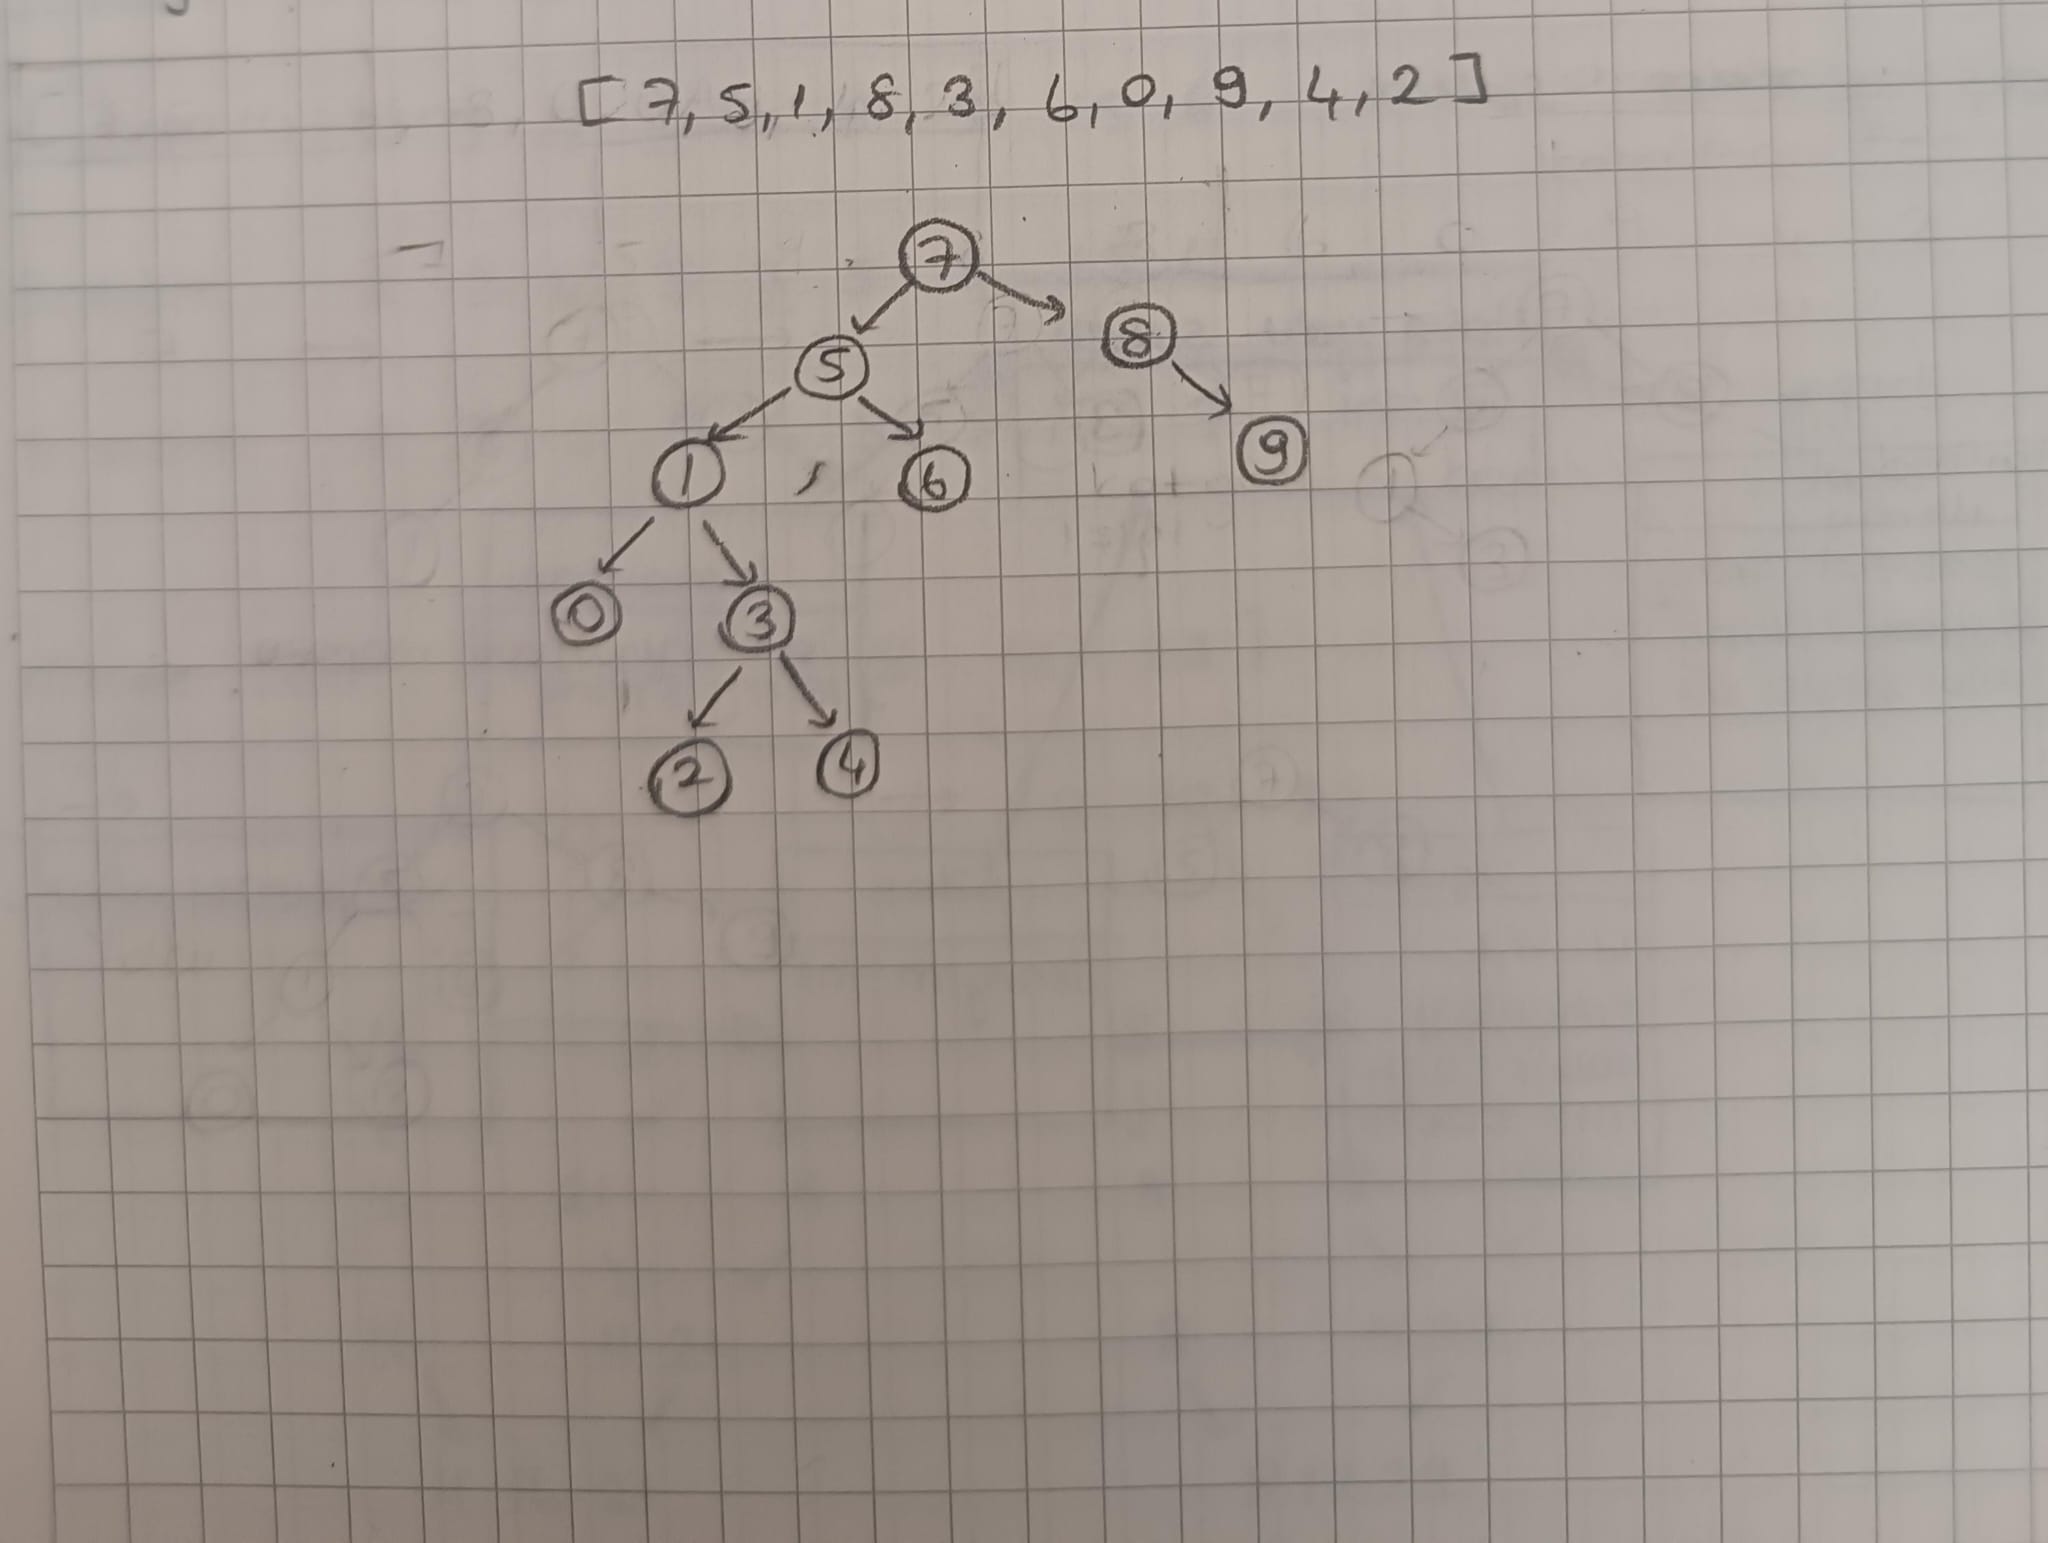 [7, 5, 1, 8, 3, 6, 0, 9, 4, 2]
7
5 8
1 6 9
0 3
2 4